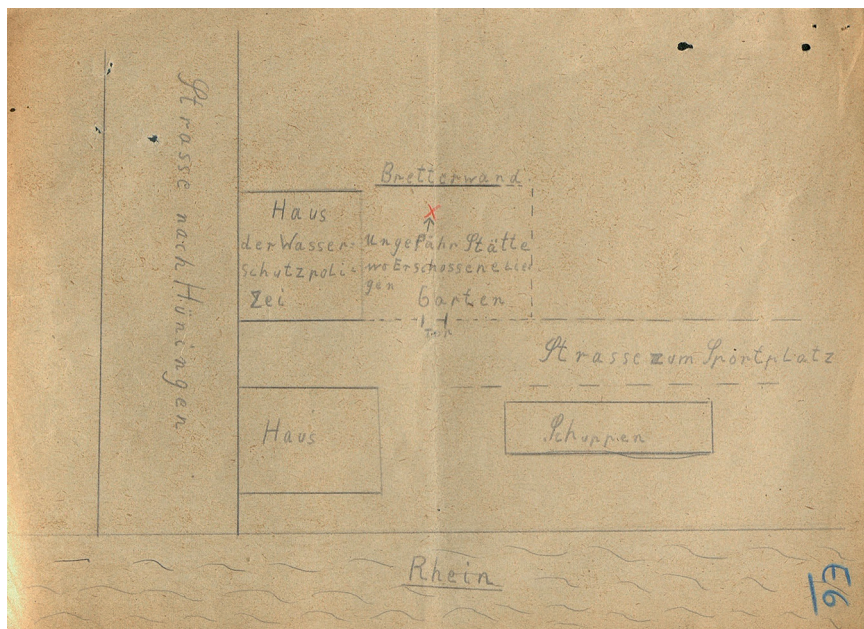 Strasse nach Hüningen
Bretterwand
X
Haus
der Wasser-
schutzpoli-
zei
Ungefähr Stätte
wo Erschossene Lie
gen
Garten
Strasse zum Sportplatz
Haus
Schuppen
Rhein